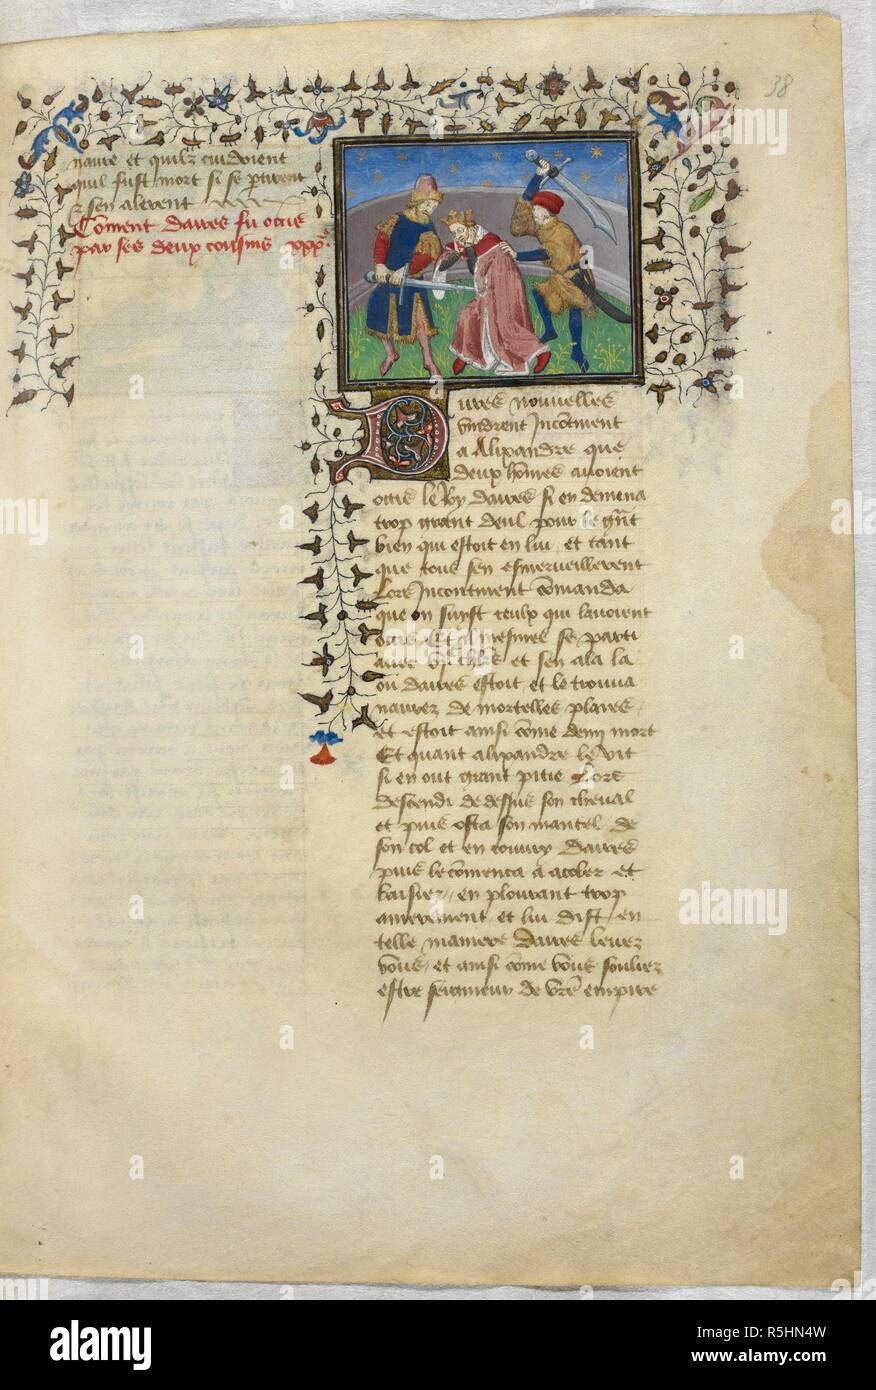 38
navre et quilz cuidoient
quil fust mort si se ptirent
& sen alerent
Coment daires fu occis
par ses deux cousins xxxe.
Dures nouvelles
vindrent Incotment
a Alixandre que
deux homes avoient
occis le Roy daires si en demena
trop grant deul pour le gnt
bien qui estoit en lui et tant
que tous sen esmerveillerent
Lors Incontment comanda
que on suyst ceulx qui lavoient
occis Et il mesmes se parti
avec chlrs et sen ala la
ou daires estoit et le trouva
navrez de mortelles plaies
et estoit ainsi come demy mort
Et quant alixandre le vit
si en out grant pitie Lors
descendi de dessus son cheval
et puis osta son mantel de
son col et en couvry daires
puis le comenca a acoler et
baisier en plourant trop
amerement et lui dist en
telle maniere Daires levez
vous et ainsi come vous souliez
estre seigneur de vre empire
alamy
Image ID: R5HN4W
www.alamy.com